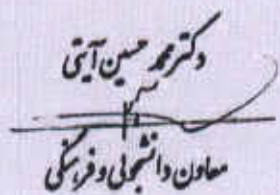 دکتر محمد حسین آیتی
معاون دانشجویی و فرهنگی